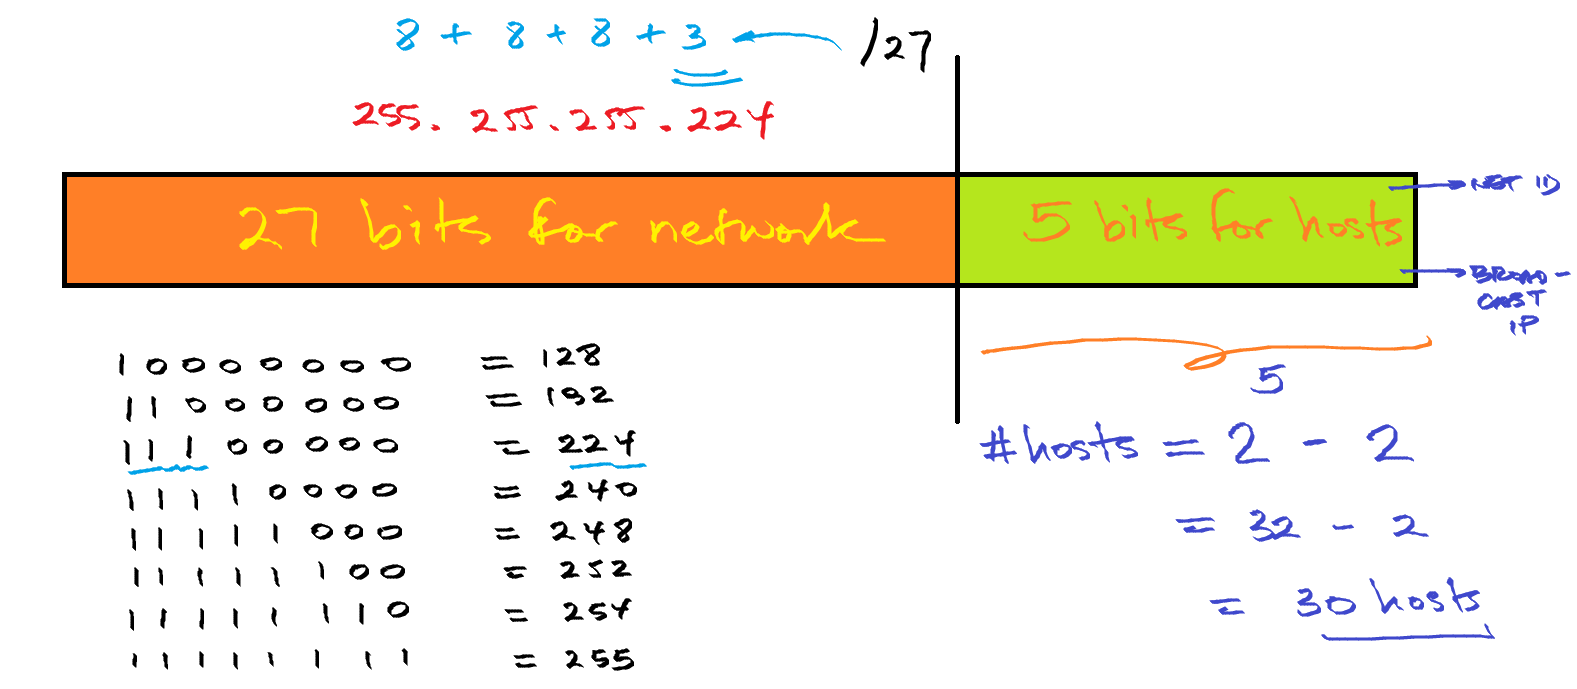 8 + 8 + 8 + 3 /27
255. 255. 255. 224
27 bits for network
5 bits for hosts
NET ID
BROAD-
CAST
IP
1 0 0 0 0 0 0 0 = 128
1 1 0 0 0 0 0 0 = 192
1 1 1 0 0 0 0 0 = 224
1 1 1 1 0 0 0 0 = 240
1 1 1 1 1 0 0 0 = 248
1 1 1 1 1 1 0 0 = 252
1 1 1 1 1 1 1 0 = 254
1 1 1 1 1 1 1 1 = 255
5
#hosts = 2 - 2
= 32 - 2
= 30 hosts